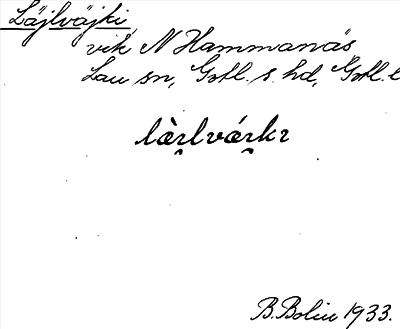 Läjlväjki,
vik N Hammanäs
Lau sn, Gotl. s. hd, Gotl. l
B. Bolin 1933.